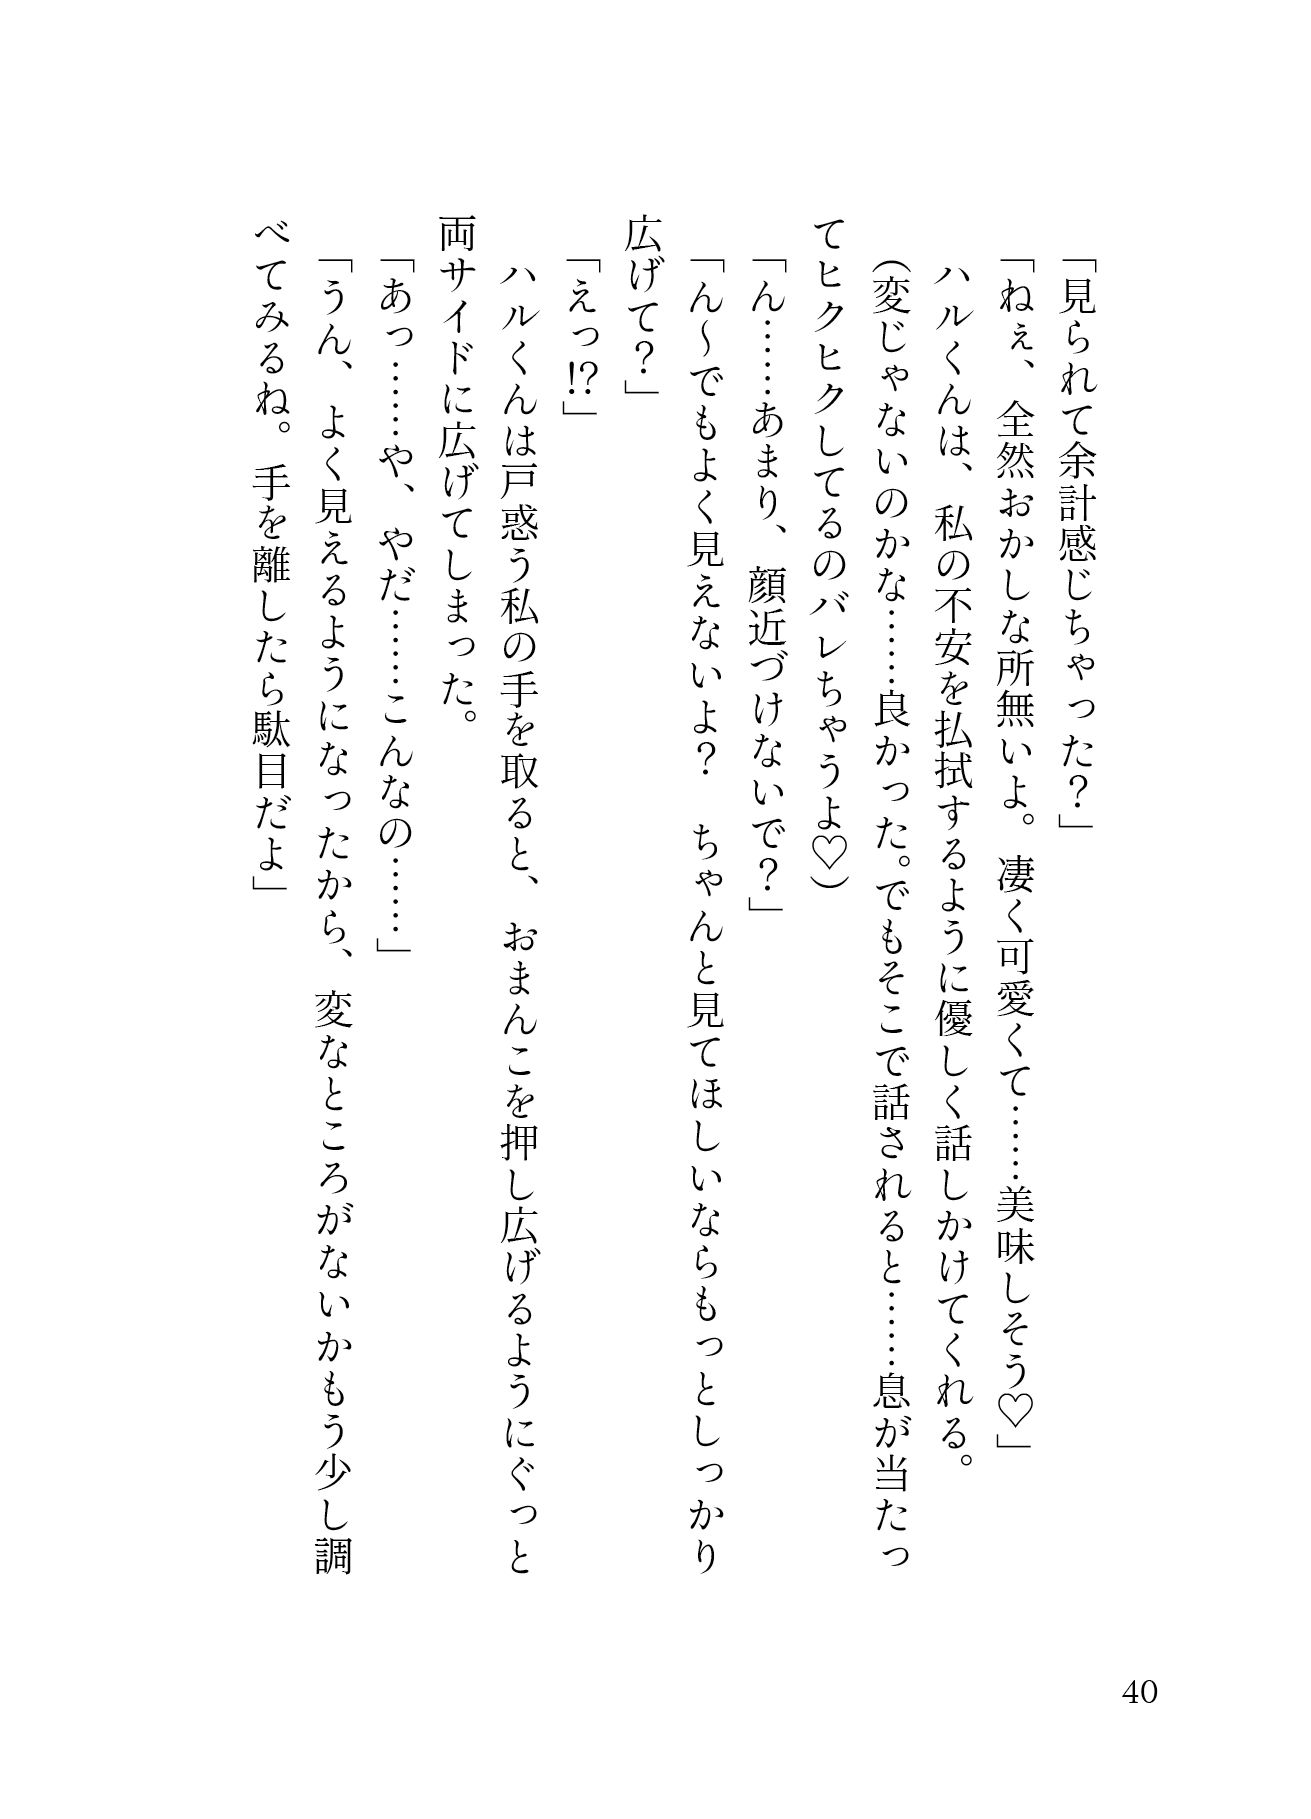 「見られて余計感じちゃった？」
「ねぇ、全然おかしな所無いよ。凄く可愛くて……美味しそう♡」
ハルくんは、私の不安を払拭するように優しく話しかけてくれる。
（変じゃないのかな……良かった。でもそこで話されると……息が当たっ
てヒクヒクしてるのバレちゃうよ♡）
「ん……あまり、顔近づけないで？」
「ん～でもよく見えないよ？　ちゃんと見てほしいならもっとしっかり
広げて？」
「えっ!?」
ハルくんは戸惑う私の手を取ると、おまんこを押し広げるようにぐっと
両サイドに広げてしまった。
「あっ……や、やだ……こんなの……」
「うん、よく見えるようになったから、変なところがないかもう少し調
べてみるね。手を離したら駄目だよ」
40